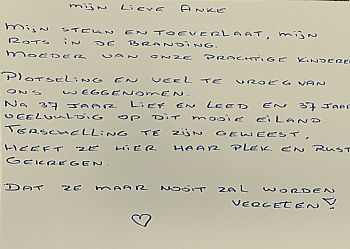 Mijn Lieve Anke
Mijn steun en toeverlaat, mijn
rots in de branding.
Moeder van onze prachtige kinderen
Plotseling en veel te vroeg van
ons weggenomen.
Na 37 jaar lief en leed en 37 jaar
veelvuldig op dit mooie eiland
Terschelling te zijn geweest,
heeft ze hier haar plek en rust
gekregen.
Dat ze maar nooit zal worden
vergeten!